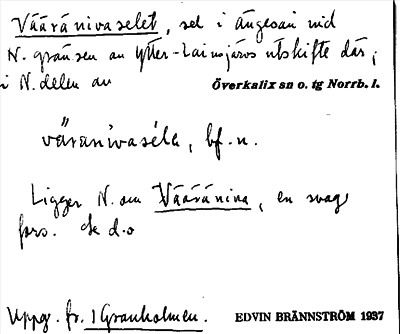 Vääränivaselet, sel i ängesån vid
N. gränsen av Ytter-Lainsjärvs utskifte där,
i N. delen av Överkalix sn o. tg Norrb. l.
väranivaséla, bf. n.
Ligger N. om Vääräniva, en svag
fors. Se d.o
Uppg. fr. 1 Granholmen. EDVIN BRÄNNSTRÖM 1937